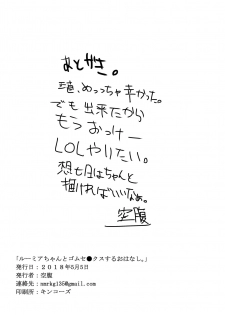 あとがき。
現在、めっちゃ辛かった。
でも出来たから
もうおっけー
LOLやりたい。
想七日はちゃんと
描ければいいなぁ。
空腹
「ルーミアちゃんとゴムセ●クスするおはなし。」
発行日：２０１８年5月5日
発行者：空腹
連絡先：smrkg135@gmail.com
印刷所：キンコーズ